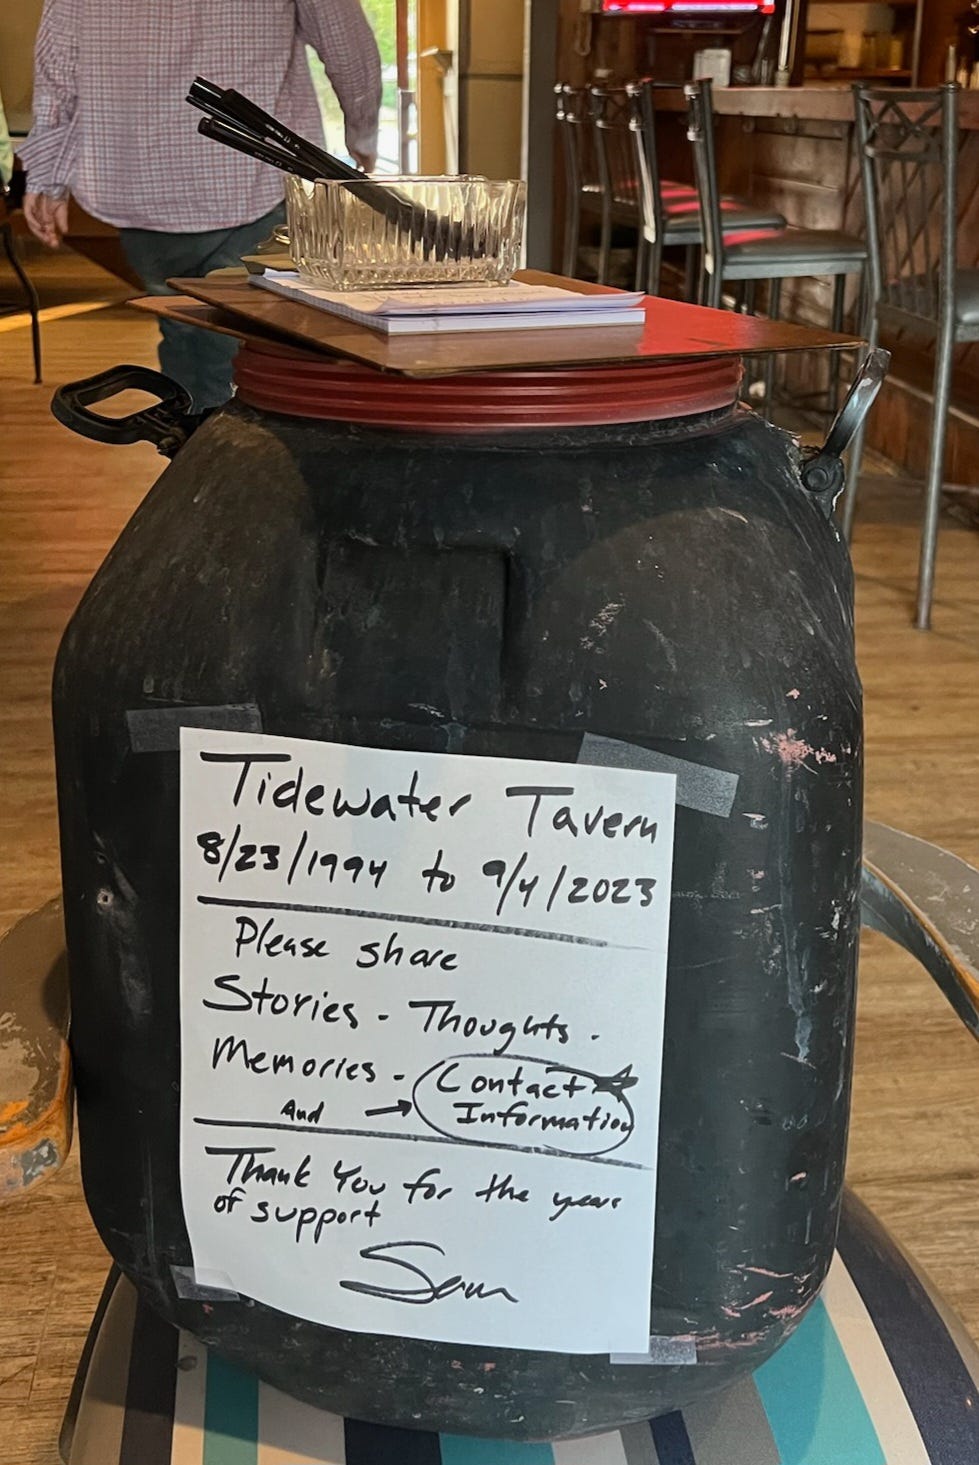 Tidewater Tavern
8/23/1994 to 9/4/2023
Please share
Stories - Thoughts -
Memories - Contact
And → Information
Thank You for the years
of support
Sean